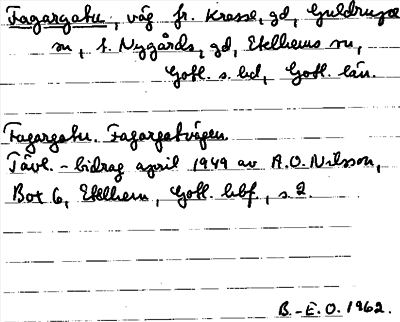 Fagargatu, väg fr. Krasse, gd, Guldrupe
sn, t. Nygårds, gd, Etelhems sn,
Gotl. s. hd, Gotl. län.
Fagargatu. Fagargatvägen
Tävl.-bidrag april 1949 av A.O. Nilsson,
Box 6, Etelhem, Gotl. hbf., s. 2.
B.-E.O. 1962.